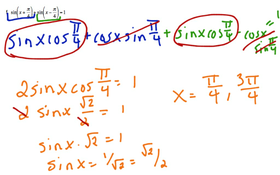 sin(x + π/4) + sin(x − π/4) = 1
sin x cos π/4 + cos x sin π/4 + sin x cos π/4 − cos x sin π/4 = 1
2 sin x cos π/4 = 1
2 sin x √2/2 = 1
sin x · √2 = 1
sin x = 1/√2 = √2/2
x = π/4, 3π/4